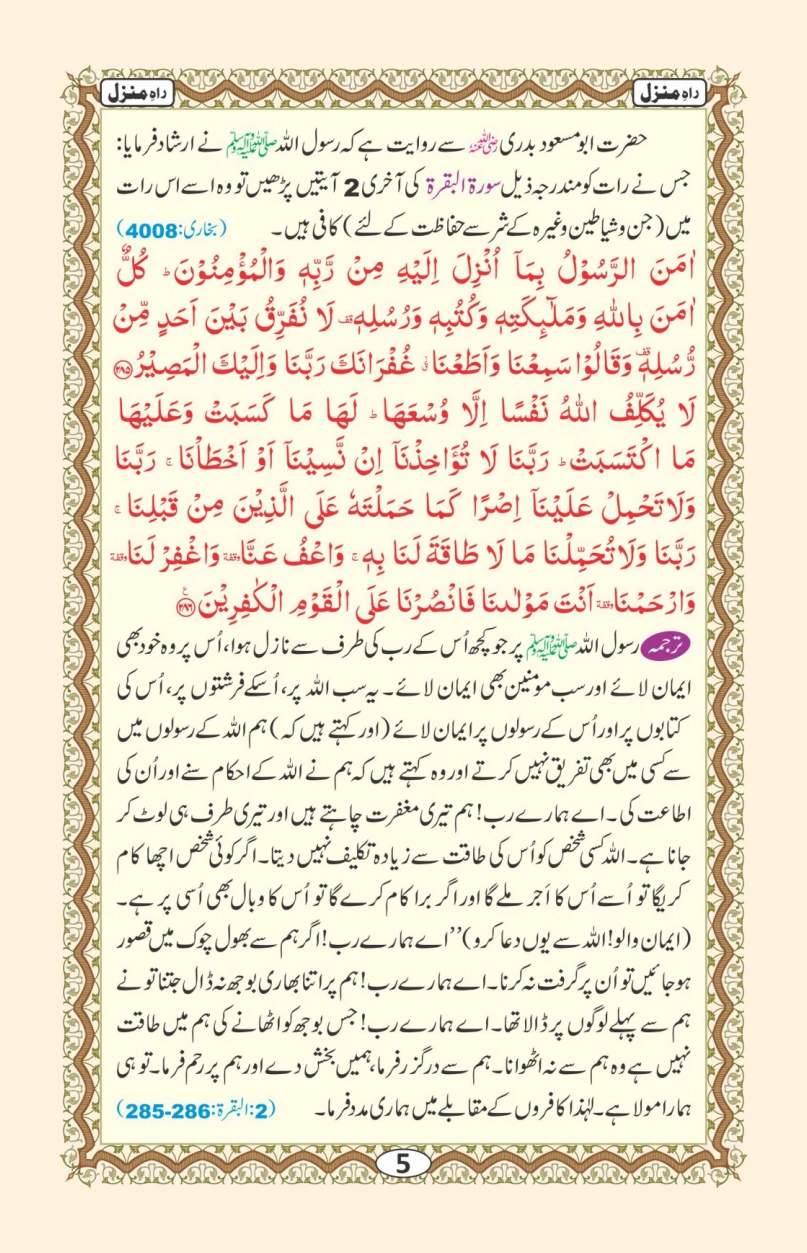 راہِ منزل
راہِ منزل
حضرت ابو مسعود بدری رضی اللہ عنہ سے روایت ہے کہ رسول اللہ ﷺ نے ارشاد فرمایا:
جس نے رات کو مندرجہ ذیل سورۃ البقرۃ کی آخری 2 آیتیں پڑھیں تو وہ اسے اس رات
میں (جن و شیاطین وغیرہ کے شر سے حفاظت کے لئے) کافی ہیں۔ (بخاری:4008)
اٰمَنَ الرَّسُوْلُ بِمَاۤ اُنْزِلَ اِلَيْهِ مِنْ رَّبِّهٖ وَالْمُؤْمِنُوْنَ ؕ كُلٌّ
اٰمَنَ بِاللّٰهِ وَمَلٰٓئِكَتِهٖ وَكُتُبِهٖ وَرُسُلِهٖ ۟ لَا نُفَرِّقُ بَيْنَ اَحَدٍ مِّنْ
رُّسُلِهٖ ۟ وَقَالُوْا سَمِعْنَا وَاَطَعْنَا ۫ غُفْرَانَكَ رَبَّنَا وَاِلَيْكَ الْمَصِيْرُ ۝۲۸۵
لَا يُكَلِّفُ اللّٰهُ نَفْسًا اِلَّا وُسْعَهَا ؕ لَهَا مَا كَسَبَتْ وَعَلَيْهَا
مَا اكْتَسَبَتْ ؕ رَبَّنَا لَا تُؤَاخِذْنَاۤ اِنْ نَّسِيْنَاۤ اَوْ اَخْطَاْنَا ۚ رَبَّنَا
وَلَا تَحْمِلْ عَلَيْنَاۤ اِصْرًا كَمَا حَمَلْتَهٗ عَلَى الَّذِيْنَ مِنْ قَبْلِنَا ۚ
رَبَّنَا وَلَا تُحَمِّلْنَا مَا لَا طَاقَةَ لَنَا بِهٖ ۚ وَاعْفُ عَنَّا وقفة وَاغْفِرْ لَنَا وقفة
وَارْحَمْنَا وقفة اَنْتَ مَوْلٰىنَا فَانْصُرْنَا عَلَى الْقَوْمِ الْكٰفِرِيْنَ ۝۲۸۶ ع
ترجمہ رسول اللہ ﷺ پر جو کچھ اُس کے رب کی طرف سے نازل ہوا، اُس پر وہ خود بھی
ایمان لائے اور سب مومنین بھی ایمان لائے۔ یہ سب اللہ پر، اُسکے فرشتوں پر، اُس کی
کتابوں پر اور اُس کے رسولوں پر ایمان لائے (اور کہتے ہیں کہ) ہم اللہ کے رسولوں میں
سے کسی میں بھی تفریق نہیں کرتے اور وہ کہتے ہیں کہ ہم نے اللہ کے احکام سنے اور اُن کی
اطاعت کی۔ اے ہمارے رب! ہم تیری مغفرت چاہتے ہیں اور تیری طرف ہی لوٹ کر
جانا ہے۔ اللہ کسی شخص کو اُس کی طاقت سے زیادہ تکلیف نہیں دیتا۔ اگر کوئی شخص اچھا کام
کریگا تو اُسے اُس کا اَجر ملے گا اور اگر برا کام کرے گا تو اُس کا وبال بھی اُسی پر ہے۔
(ایمان والو! اللہ سے یوں دعا کرو) ’’اے ہمارے رب! اگر ہم سے بھول چوک میں قصور
ہو جائیں تو اُن پر گرفت نہ کرنا۔ اے ہمارے رب! ہم پر اتنا بھاری بوجھ نہ ڈال جتنا تو نے
ہم سے پہلے لوگوں پر ڈالا تھا۔ اے ہمارے رب! جس بوجھ کو اٹھانے کی ہم میں طاقت
نہیں ہے وہ ہم سے نہ اٹھوانا۔ ہم سے درگزر فرما، ہمیں بخش دے اور ہم پر رحم فرما۔ تو ہی
ہمارا مولا ہے۔ لہٰذا کافروں کے مقابلے میں ہماری مدد فرما۔ (2:البقرۃ:286-285)
5